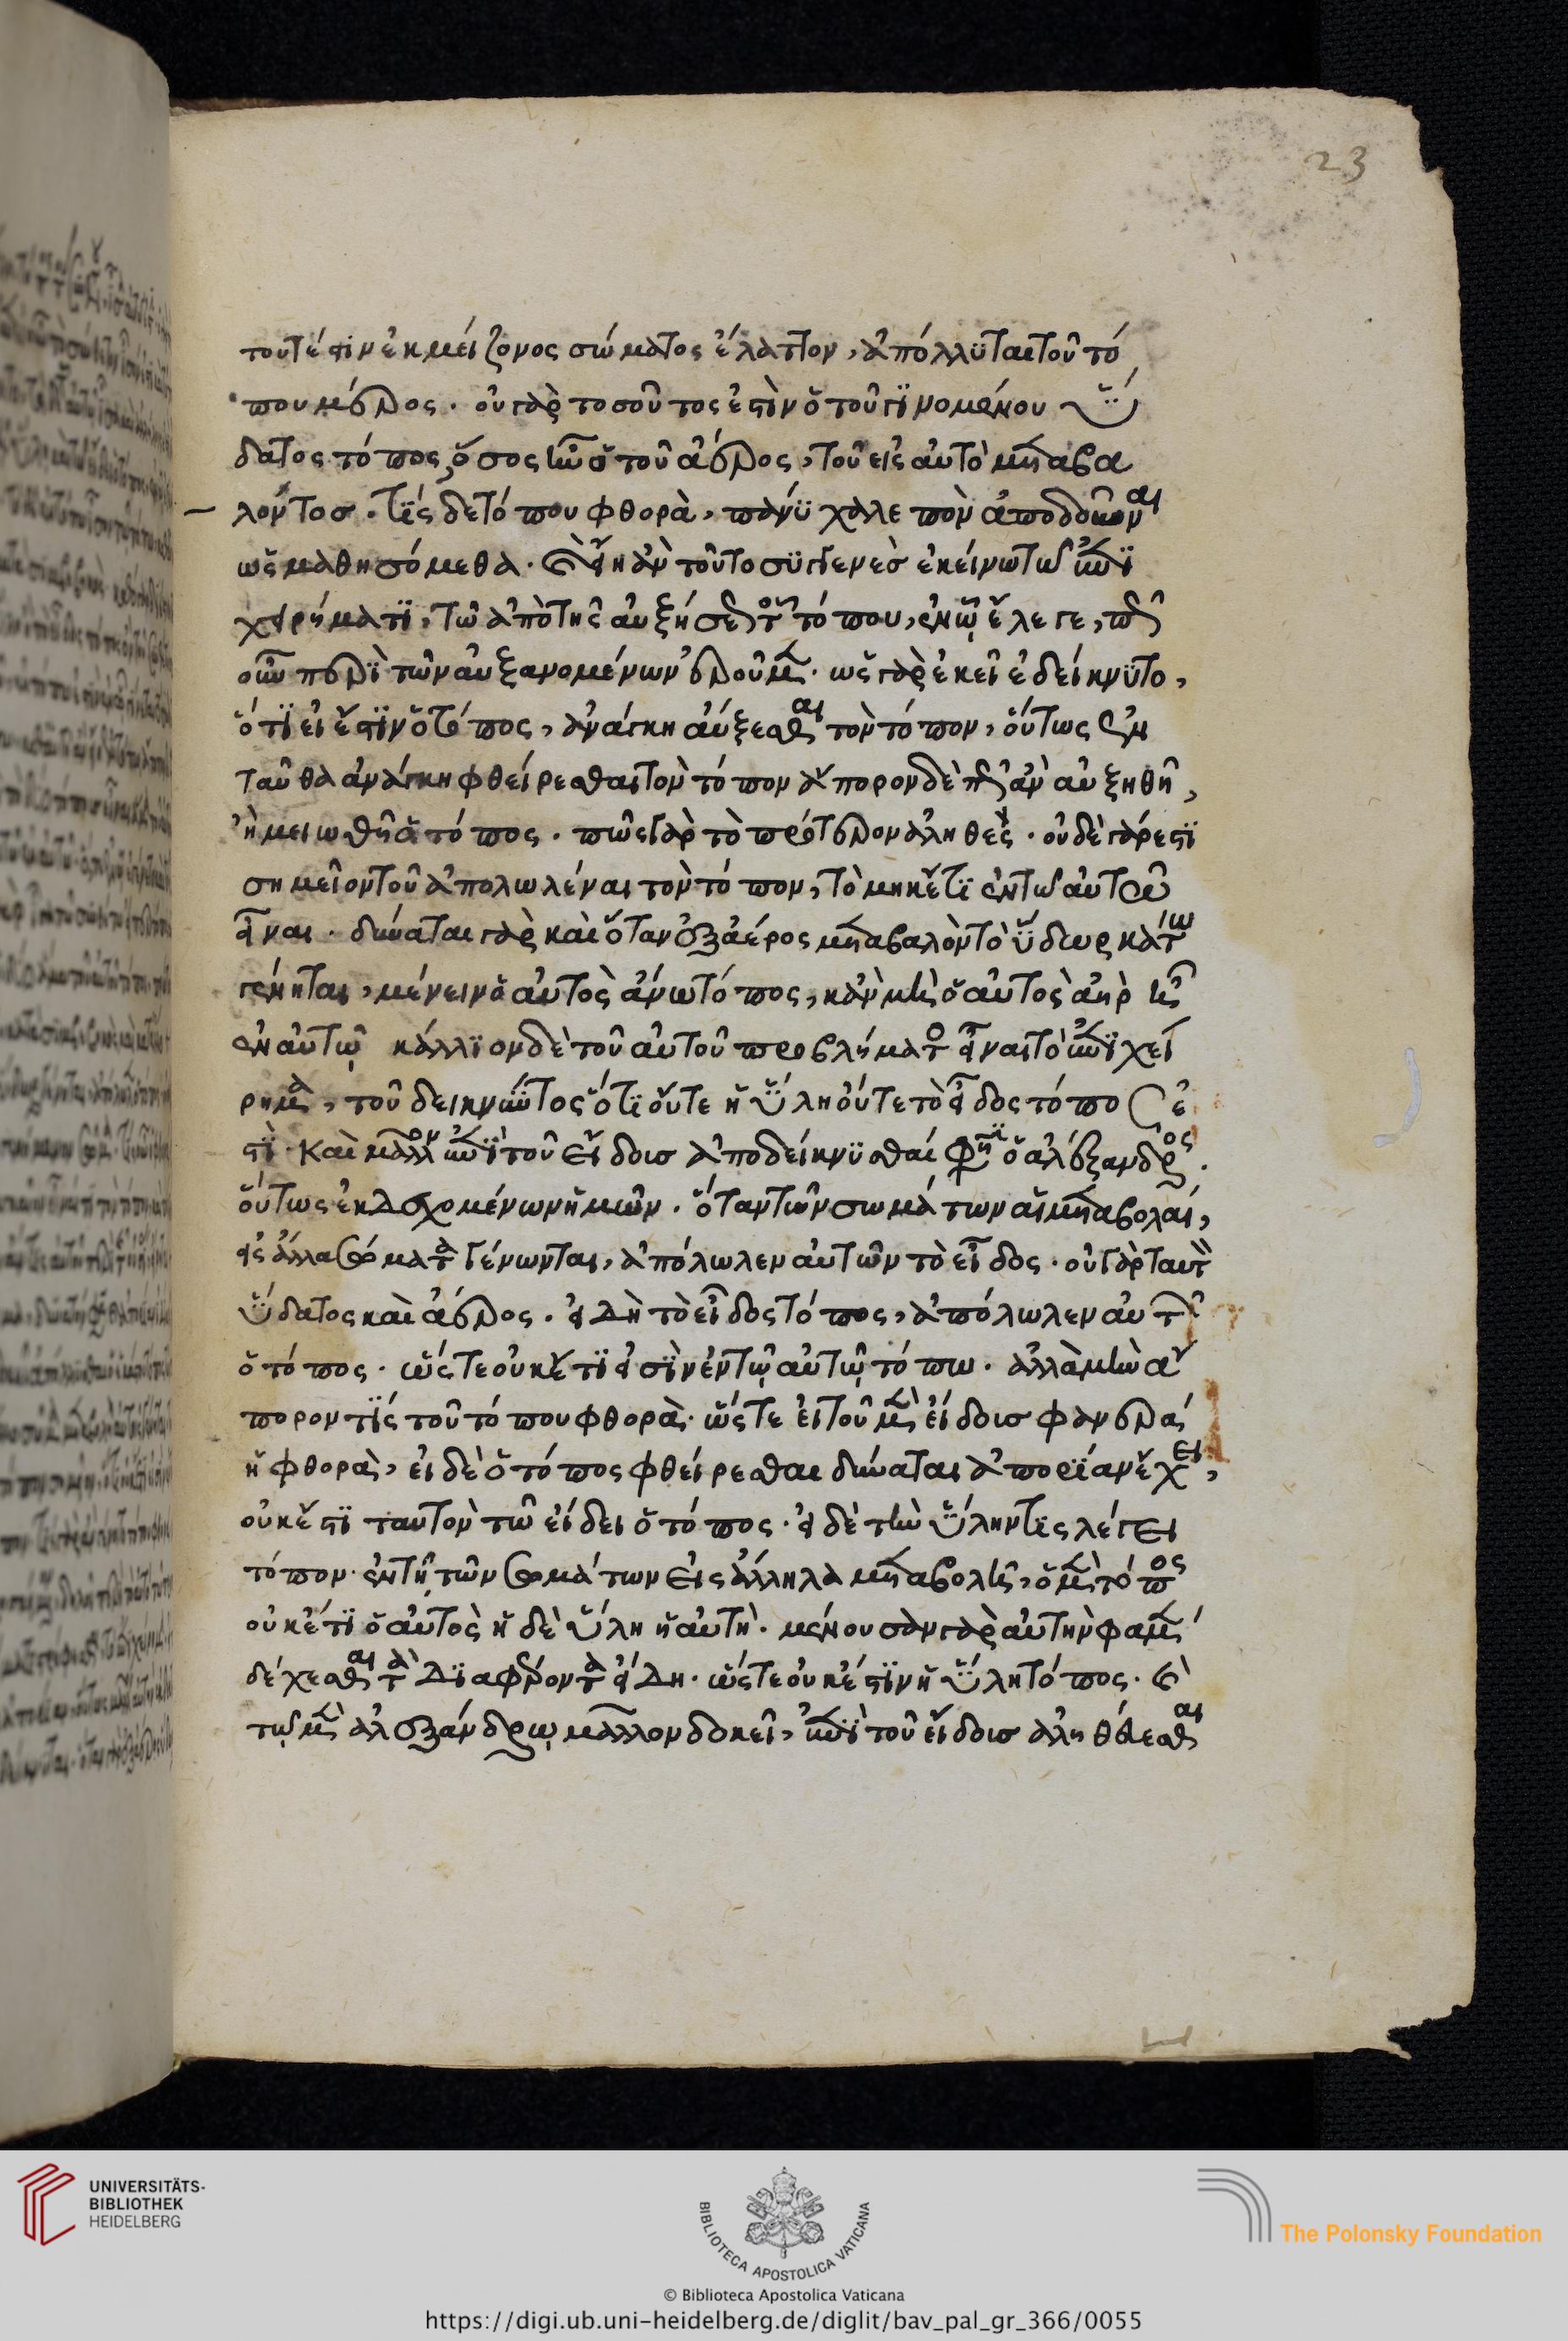 23
τουτέστιν ἐκ μείζονος σώματος ἔλαττον, ἀπόλλυται τοῦ τό
που μέρος. οὐ γὰρ τοσοῦτος ἐστὶν ὁ τοῦ γινομένου ὕ
δατος τόπος, ὅσος ἦν ὁ τοῦ ἀέρος, τοῦ εἰς αὐτὸ μεταβα
λόντος. τίς δὲ τόπου φθορὰ, πάνυ χαλεπὸν ἀποδοῦναι
ὡς μαθησόμεθα. εἴη ἂν τοῦτο συγγενὲς ἐκείνω τῶ ἐπι
χειρήματι, τῶ ἀπὸ τῆς αὐξήσεως τοῦ τόπου, ἐν ᾧ ἔλεγε, πῶς
οὖν περὶ τῶν αὐξανομένων ἐροῦμεν. ὡς γὰρ ἐκεῖ ἐδείκνυτο,
ὅτι εἰ ἔστιν ὁ τόπος, ἀνάγκη αὔξεσθαι τὸν τόπον, οὕτως ἐν
ταῦθα ἀνάγκη φθείρεσθαι τὸν τόπον ἄπορον δὲ πῶς ἂν αὐξηθῆ,
ἢ μειωθῆ ὁ τόπος. πῶς γὰρ τὸ πρότερον ἀληθές. οὐδὲ γάρ ἐστι
σημεῖον τοῦ ἀπολωλέναι τὸν τόπον, τὸ μηκέτι ἐν τῶ αὐτῶ
εἶναι. δύναται γὰρ καὶ ὅταν ἐξ ἀέρος μεταβαλὸν τὸ ὕδωρ κάτω
γένηται, μένειν ὁ αὐτὸς ἄνω τόπος, κἂν μὴ ὁ αὐτὸς ἀὴρ ἦ
ἐν αὐτῷ κάλλιον δὲ τοῦ αὐτοῦ προβλήματος εἶναι τὸ ἐπιχεί
ρημα, τοῦ δεικνύντος ὅτι οὔτε ἡ ὕλη οὔτε τὸ εἶδος τόπος ἐ
στί. Καὶ μᾶλλον ἐπὶ τοῦ εἴδους ἀποδείκνυσθαί φησι ὁ ἀλέξανδρος.
οὕτως ἐκδεχομένων ἡμῶν. ὅταν τῶν σωμάτων αἱ μεταβολαί,
εἰς ἄλλα σώματα γένωνται, ἀπόλωλεν αὐτῶν τὸ εἶδος. οὐ γὰρ ταυτὸ
ὕδατος καὶ ἀέρος. εἰ δὴ τὸ εἶδος τόπος, ἀπόλωλεν αὐτῶν
ὁ τόπος. ὥστε οὐκέτι εἰσὶν ἐν τῷ αὐτῷ τόπω. ἀλλὰ μὴν ἄ
πορον τίς τοῦ τόπου φθορὰ. ὥστε εἰ τοῦ μὲν εἴδους φανερὰ
ἡ φθορὰ, εἰ δὲ ὁ τόπος φθείρεσθαι δύναται ἀπορίαν ἔχει,
οὐκ ἔστι ταυτὸν τῶ εἴδει ὁ τόπος. εἰ δὲ τὴν ὕλην τὶς λέγει
τόπον. ἐν τῇ τῶν σωμάτων εἰς ἄλληλα μεταβολῆ, ὁ μὲν τόπος
οὐκέτι ὁ αὐτὸς ἡ δὲ ὕλη ἡ αὐτὴ. μένουσαν γὰρ αὐτὴν φαμὲν
δέχεσθαι τὰ διαφέροντα εἴδη. ὥστε οὐκ ἔστιν ἡ ὕλη τόπος. καὶ
τῷ μὲν ἀλεξάνδρῳ μᾶλλον δοκεῖ, ἐπὶ τοῦ εἴδους ἀληθεύεσθαι
UNIVERSITÄTS-
BIBLIOTHEK
HEIDELBERG
BIBLIOTECA APOSTOLICA VATICANA
The Polonsky Foundation
© Biblioteca Apostolica Vaticana
https://digi.ub.uni-heidelberg.de/diglit/bav_pal_gr_366/0055